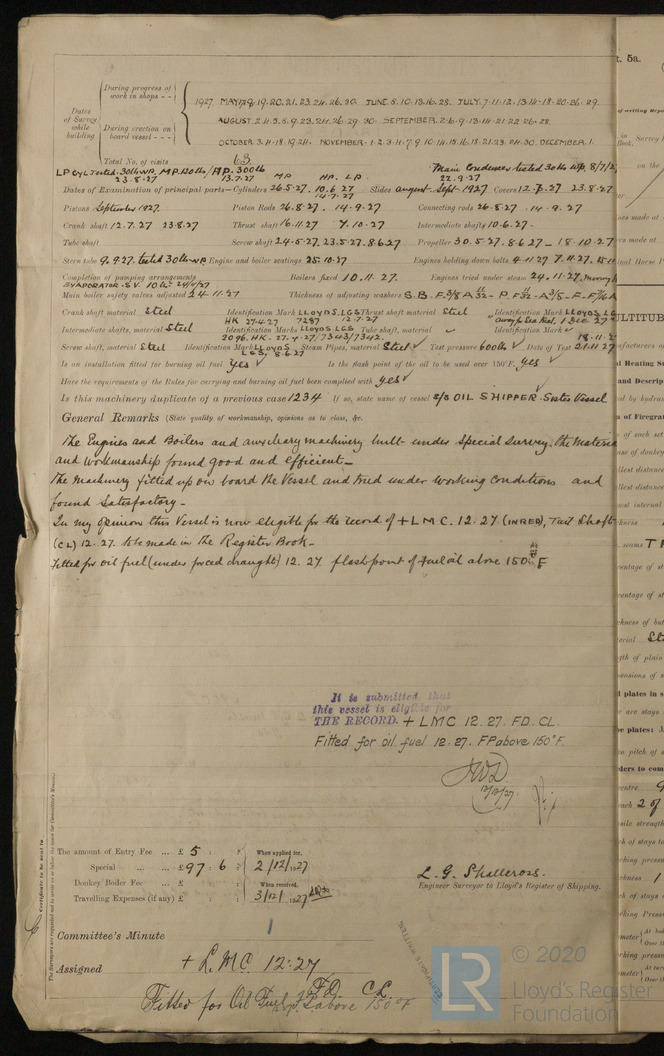 Dates of Survey while building
During progress of work in shops - -
1927. MAY 17.9.19.20.21.23.24.26.30. JUNE.8.10.13.16.28. JULY.7.11.12.13.14.18.20.26.29.
AUGUST.2.4.5.8.9.23.24.26.29.30. SEPTEMBER.2.6.9.13.14.21.22.26.28.
During erection on board vessel - - -
OCTOBER.3.11.18.19.24. NOVEMBER.1.2.3.4.7.9.10.14.15.16.18.21.23.24.30. DECEMBER.1.
Total No. of visits 63
LP Cyl Tested 30lb WP, MP 130lb / HP. 300lb
23.8.27 13.7.27
Main Condenser tested 30lb WP. 8/7/2
22.9.27
Dates of Examination of principal parts—Cylinders MP 26.5.27. HP. LP 10.6.27 14.7.27 Slides August - Sept 1927 Covers 12.7.27 23.8.27
Pistons September 1927. Piston Rods 26.8.27. 14.9.27 Connecting rods 26.8.27. 14.9.27
Crank shaft 12.7.27 23.8.27 Thrust shaft 16.11.27 7.10.27 Intermediate shafts 10.6.27.
Tube shaft Screw shaft 24.5.27, 23.5.27. 8.6.27 Propeller 30.5.27. 8.6.27 — 18.10.27
Stern tube 9.9.27. tested 30lb WP. Engine and boiler seatings 25.10.27 Engines holding down bolts 4.11.27 7.11.27.
Completion of pumping arrangements Boilers fixed 10.11.27. Engines tried under steam 24.11.27.
EVAPORATOR. S.V. 10lb 24/11/27
Main boiler safety valves adjusted 24.11.27 Thickness of adjusting washers S.B. F 3/8 A 11/32 - P. F 11/32 - A 3/8 -
Crank shaft material Steel Identification Mark LLOYDS. LGS HK 27.4.27 7287 Thrust shaft material Steel Identification Mark LLOYDS LG
12.7.27
Intermediate shafts, material Steel Identification Marks LLOYDS LGS 2096. HK. 27.4.27/7343/7342. Tube shaft, material ✓ Identification Mark ✓
Screw shaft, material Steel Identification Mark LLOYDS LGS. 8.6.27 Steam Pipes, material Steel ✓ Test pressure 600lbs ✓ Date of Test 21.11.27
Is an installation fitted for burning oil fuel Yes ✓ Is the flash point of the oil to be used over 150°F. Yes ✓
Have the requirements of the Rules for carrying and burning oil fuel been complied with Yes ✓
Is this machinery duplicate of a previous case 1234 If so, state name of vessel S/S OIL SHIPPER. Sister Vessel
General Remarks (State quality of workmanship, opinions as to class, &c.
The Engines and Boilers and auxiliary machinery built under Special Survey. The Materia
and Workmanship found good and efficient —
The Machinery fitted up on board the Vessel and tried under working conditions and
found Satisfactory —
In my opinion this Vessel is now eligible for the record of + L M C. 12.27 (IN RED), Tail Shaft
(CL) 12.27. to be made in the Register Book —
Fitted for oil fuel (under forced draught) 12.27 flash point of fuel oil above 150° F
It is submitted that
this vessel is eligible for
THE RECORD. + LMC 12.27. FD. CL.
Fitted for oil fuel 12.27. FP above 150°F.
12/12/27
The amount of Entry Fee ... £ 5 : :
Special ... ... £ 97 . 6 :
Donkey Boiler Fee ... £ : :
Travelling Expenses (if any) £ : :
When applied for,
2/12/1927
When received,
3/12/1927
L. G. Shallcross.
Engineer Surveyor to Lloyd's Register of Shipping.
Certificate to be sent to
The Surveyors are requested not to write on or below the space for Committee's Minute.
Committee's Minute
Assigned + L.M.C. 12.27
F.D. C.L.
Fitted for Oil Fuel 12.27 F.P. above 150°F
CERTIFICATE WRITTEN
LR
© 2020
Lloyd's Register
Foundation
t. 5a.